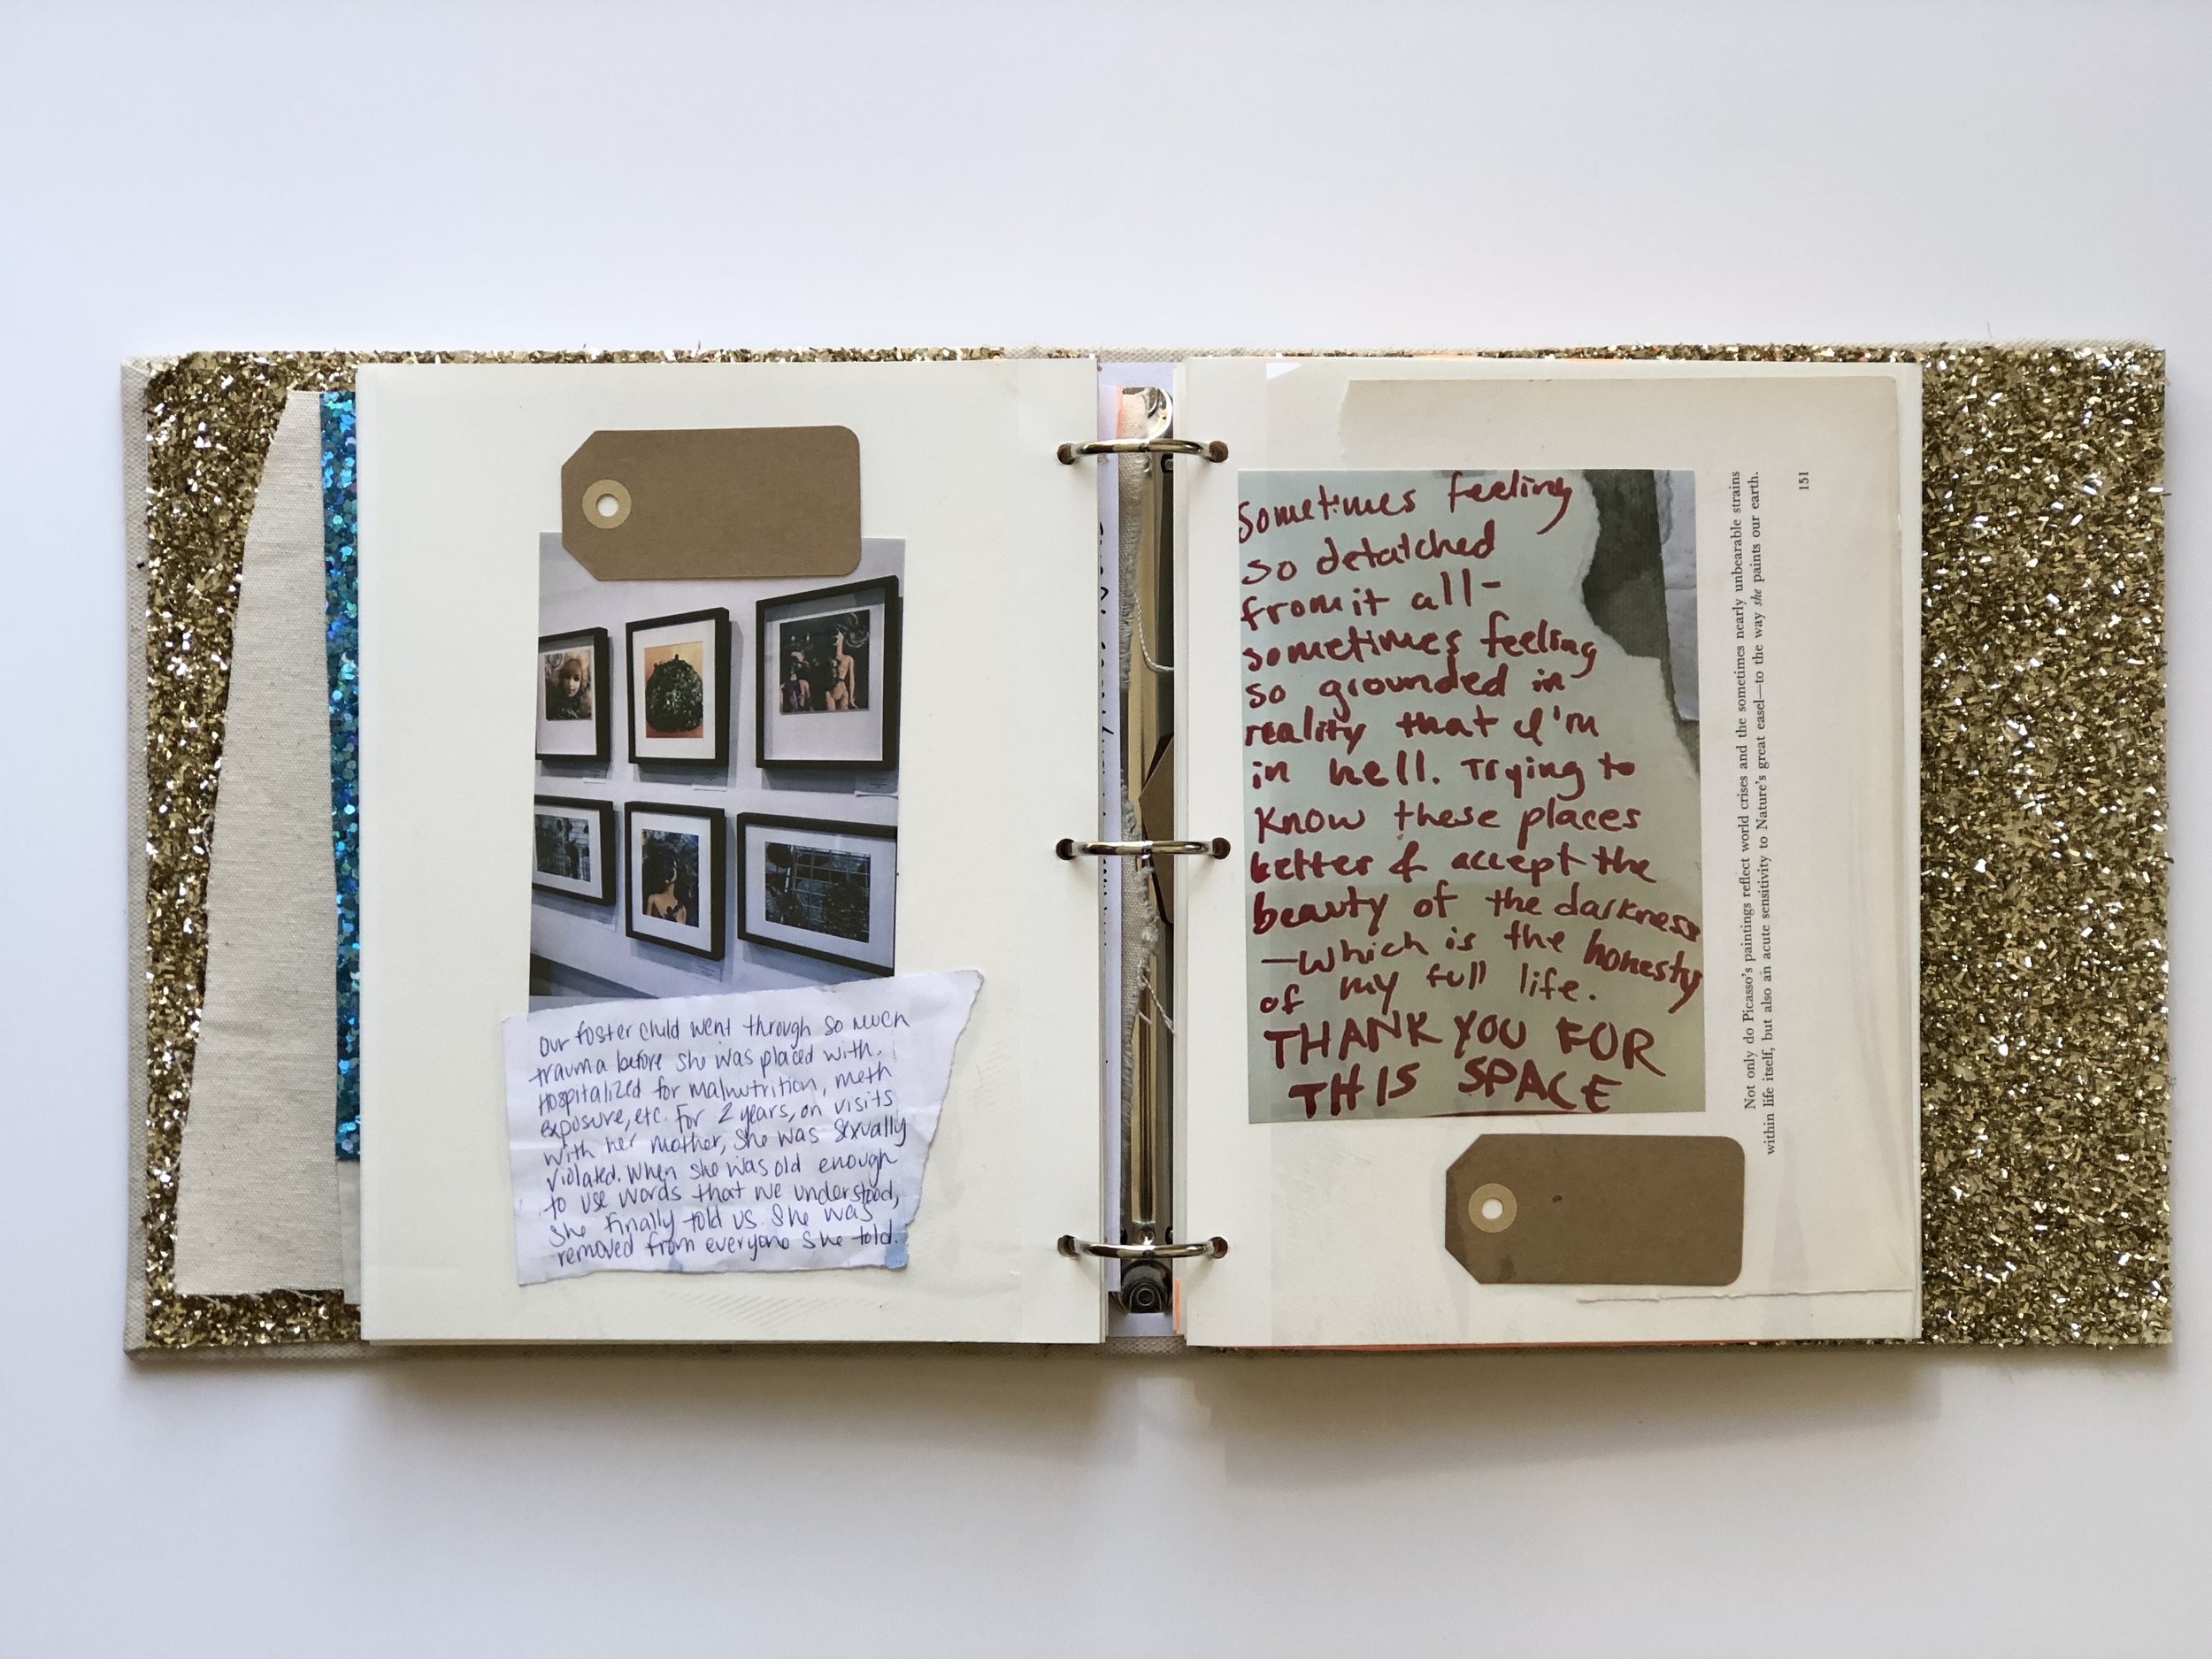 our foster child went through so much
trauma before she was placed with.
Hospitalized for malnutrition, meth
exposure, etc. For 2 years, on visits
with her mother, she was sexually
violated. When she was old enough
to use words that we understood,
she finally told us. She was
removed from everyone she told.
Sometimes feeling
so detatched
from it all-
sometimes feeling
so grounded in
reality that I'm
in hell. Trying to
know these places
better & accept the
beauty of the darkness
—which is the honesty
of my full life.
THANK YOU FOR
THIS SPACE
Not only do Picasso's paintings reflect world crises and the sometimes nearly unbearable strains
within life itself, but also an acute sensitivity to Nature's great easel—to the way she paints our earth.
151